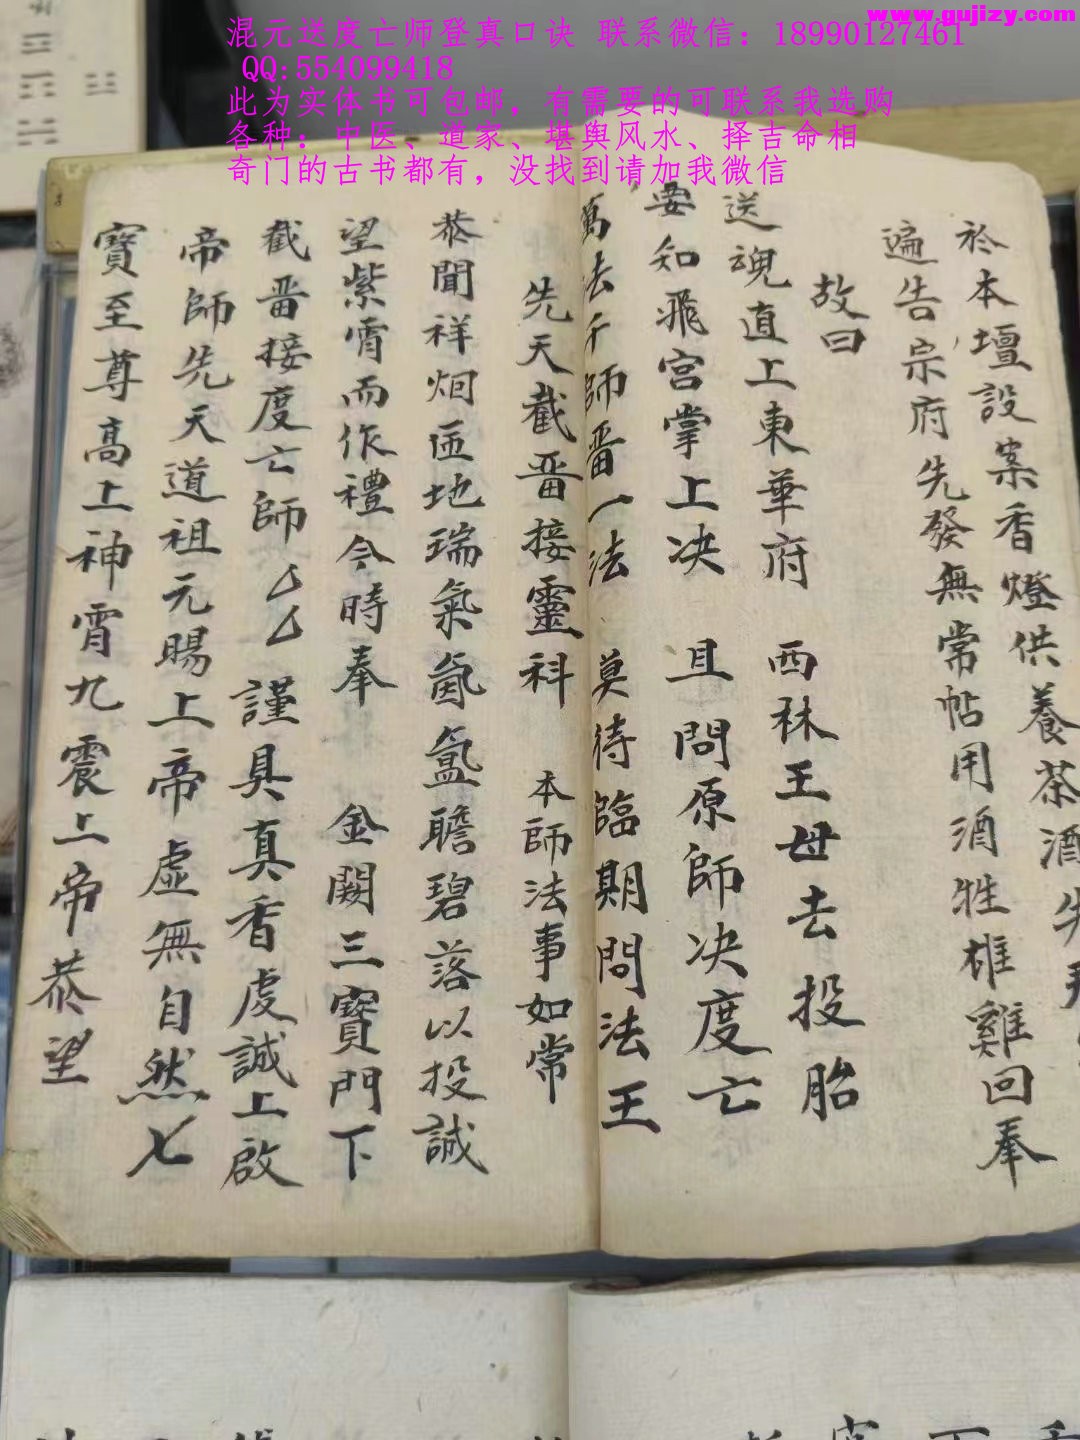 www.gujizy.com
混元送度亡师登真口诀 联系微信：18990127461
QQ:554099418
此为实体书可包邮，有需要的可联系我选购
各种：中医、道家、堪舆风水、择吉命相
奇门的古书都有，没找到请加我微信
於本壇設案香燈供養茶酒先
遍告宗府先發無常帖用酒牲雄雞回奉
故曰
送魂直上東華府 西林王母去投胎
要知飛宮掌上决 且問原師决度亡
萬法千師畨一法 莫待臨期問法王
先天截畨接靈科 本師法事如常
恭聞祥烟匝地瑞氣氤氳瞻碧落以投誠
望紫霄而作禮今時奉 金闕三寶門下
截畨接度亡師厶厶謹具真香虔誠上啟
帝師先天道祖元賜上帝虛無自然七
寶至尊高上神霄九震上帝恭望